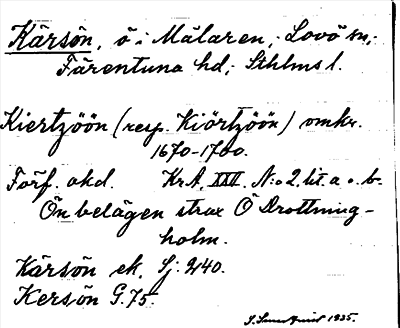 Kärsön, ö i Mälaren, Lovö sn,
Färentuna hd, Sthlms l.
Kiertzöön (resp. Kiörtzöön) omkr.
1670-1700.
Förf. okd. KrA, XXVI. N:o 2. lit. a o. b.
Ön belägen strax Ö Drottning-
holm.
Kärsön ek. Sj: 940.
Kersön G. 75.
1935.